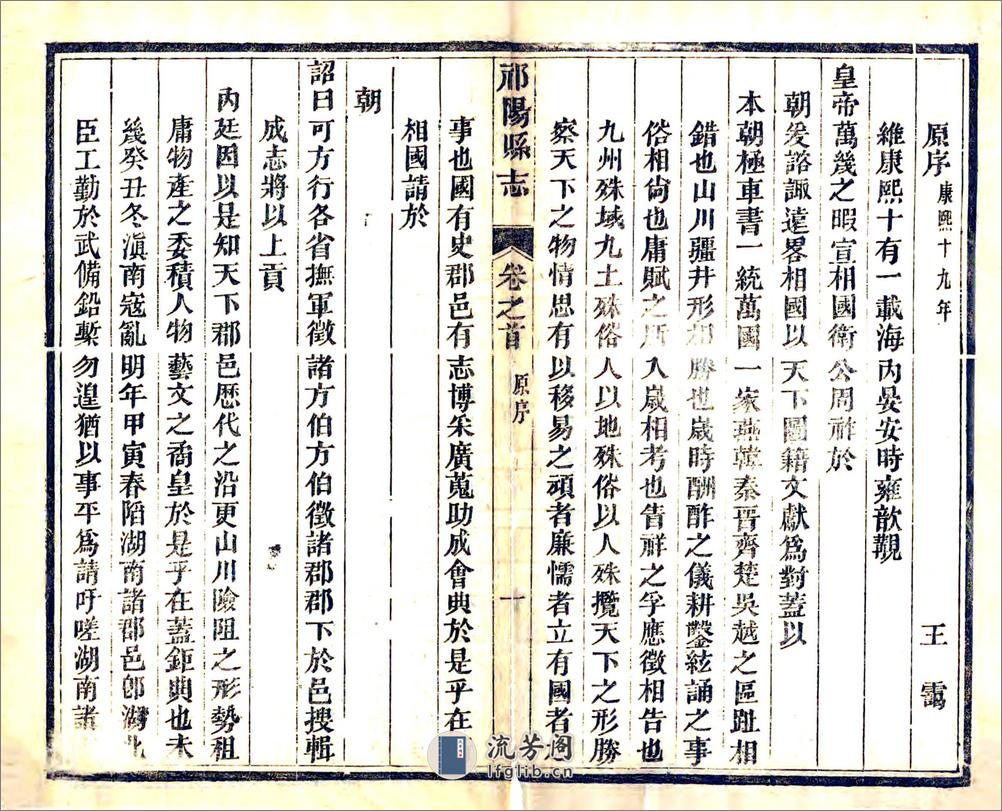 原序 康熙十九年 王霭
維康熙十有一載海內晏安時雍歌覯
皇帝萬幾之暇宣相國衛公周祚於
朝爰諮諏遠畧相國以天下圖籍文獻爲對蓋以
本朝極車書一統萬國一家燕韓秦晉齊楚吳越之區趾相
錯也山川疆井形相勝也歲時酬酢之儀耕鑿絃誦之事
俗相尙也庸賦之所入歲相考也眚祥之孚應徵相告也
九州殊域九土殊俗人以地殊俗以人殊攬天下之形勝
察天下之物情思有以移易之頑者廉懦者立有國者
祁陽縣志 卷之首 原序 十
事也國有史郡邑有志博采廣蒐助成會典於是乎在
相國請於
朝
詔曰可方行各省撫軍徵諸方伯方伯徵諸郡郡下於邑搜輯
成志將以上貢
內廷因以是知天下郡邑歷代之沿更山川險阻之形勢租
庸物產之委積人物藝文之矞皇於是乎在蓋鉅典也未
幾癸丑冬滇南寇亂明年甲寅春陷湖南諸郡邑郎湖北
臣工勤於武備鉛槧勿遑猶以事平爲請吁嗟湖南諸
流芳阁
lfglib.cn